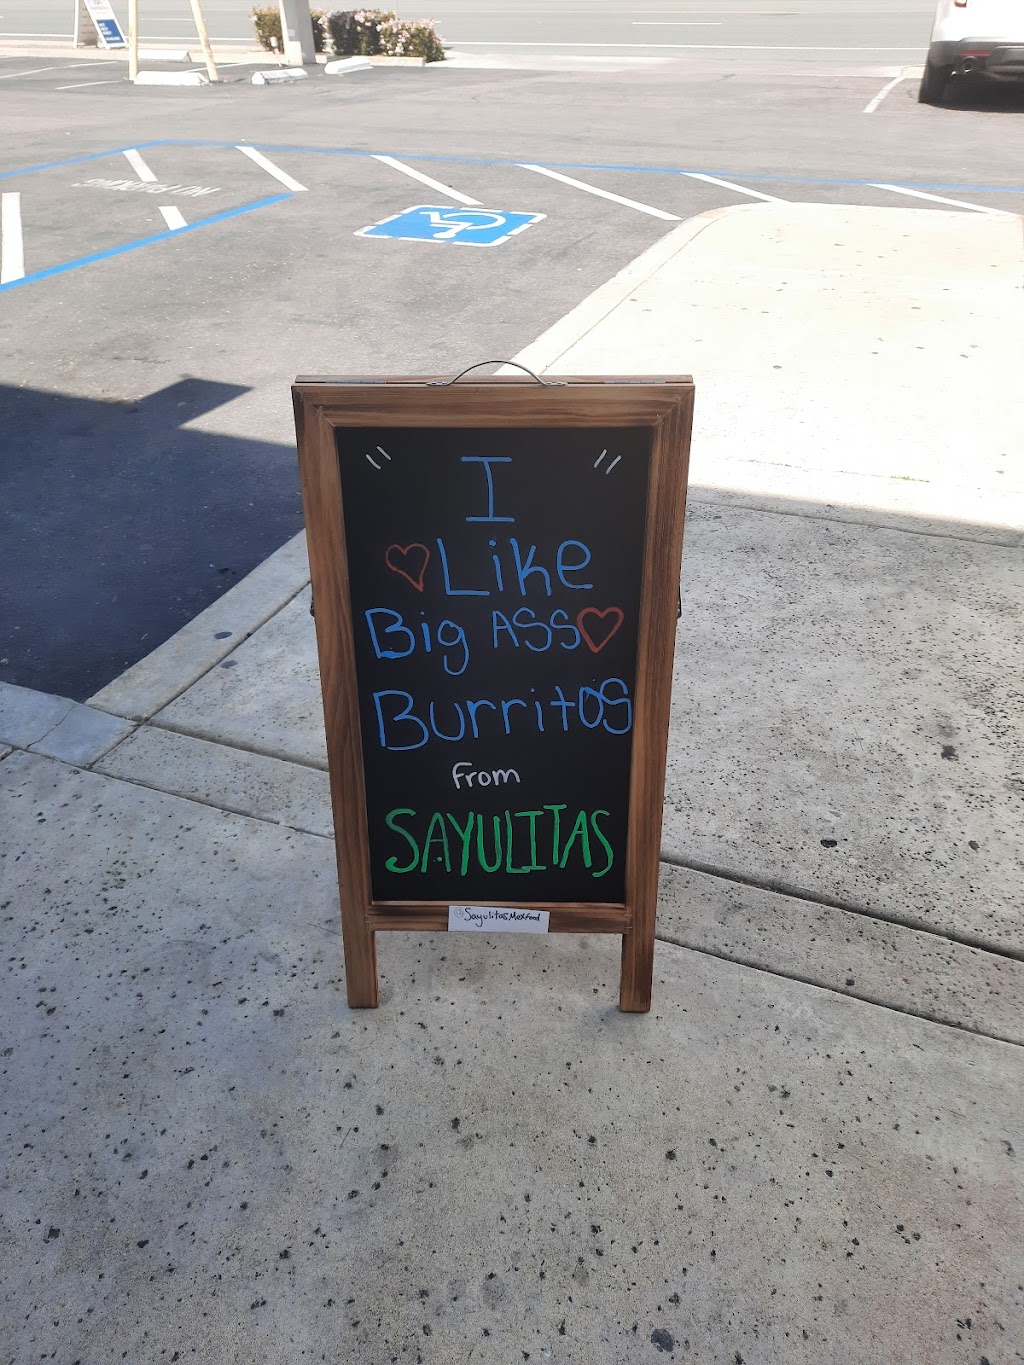 NO PARKING
" I "
Like
Big ASS
Burritos
From
SAYULITAS
@SayulitasMexFood